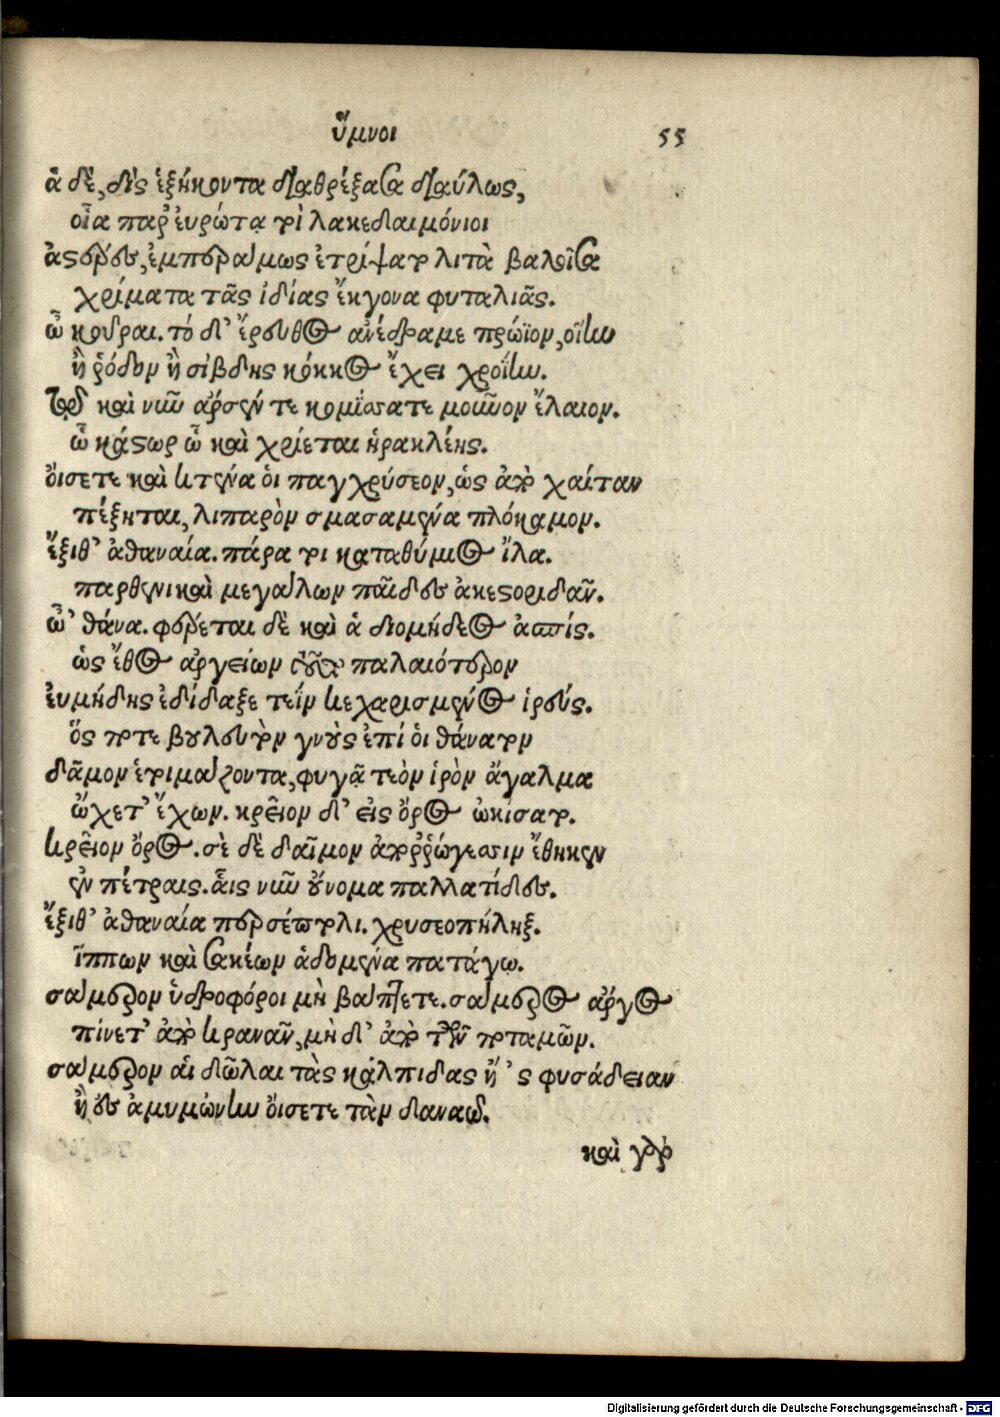 ὕμνοι 55
ἁ δὲ, δὶς ἑξήκοντα διαθρέξασα διαύλως,
οἷα παρ' ἐυρώτᾳ τοὶ λακεδαιμόνιοι
ἀστέρες, ἐμπεράμως ἐτρίψατο λιτὰ βαλοῖσα
χρίματα τᾶς ἰδίας ἔκγονα φυταλιᾶς.
ὦ κοῦραι. τό δ' ἔρευθος ἀνέδραμε πρώϊον, οἵην
ἢ ῥόδον ἢ σίβδης κόκκος ἔχει χροΐην.
τῷ καὶ νῦν ἄρσέν τε κομίσσατε μοῦνον ἔλαιον.
ᾧ κάστωρ ᾧ καὶ χρίεται ἡρακλέης.
ὄισετε καὶ κτένα ὁι παγχρύσεον, ὡς ἀπὸ χαίταν
πέξηται, λιπαρὸν σμασαμένα πλόκαμον.
ἔξιθ' ἀθαναία. πάρα τοι καταθύμιος ἴλα.
παρθενικαὶ μεγάλων παῖδες ἀκεστοριδᾶν.
ὦ' θάνα. φέρεται δὲ καὶ ἁ διομήδεος ἀσπίς.
ὡς ἔθος ἀργείων τοῦτο παλαιότερον
ἐυμήδης ἐδίδαξε τεΐν κεχαρισμένος ἱρεύς.
ὅς ποτε βουλευτὸν γνοὺς ἐπί ὁι θάνατον
δᾶμον ἑτοιμάζοντα, φυγᾷ τεὸν ἱρὸν ἄγαλμα
ᾤχετ' ἔχων. κρεῖον δ' εἰς ὄρος ὠκίσατο.
κρεῖον ὄρος. σὲ δὲ δαῖμον ἀπορρώγεσσιν ἔθηκεν
ἐν πέτραις. ἇις νῦν οὔνομα παλλατίδες.
ἔξιθ' ἀθαναία περσέπτολι. χρυσεοπήληξ.
ἵππων καὶ σακέων ἁδομένα πατάγῳ.
σάμερον ὑδροφόροι μὴ βάπτετε. σάμερον ἄργος
πίνετ' ἀπὸ κρανᾶν, μὴ δ' ἀπὸ τῶν ποταμῶν.
σάμερον αἱ δῶλαι τὰς κάλπιδας ἢ 'ς φυσάδειαν
ἢ ἐς ἀμυμώνην ὄισετε τὰν δαναῶ.
καὶ γὰρ
Digitalisierung gefördert durch die Deutsche Forschungsgemeinschaft - DFG